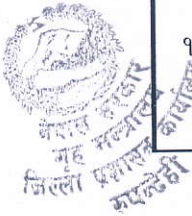 १
नेपाल सरकार
गृह मन्त्रालय
जिल्ला प्रशासन कार्यालय
रुपन्देही